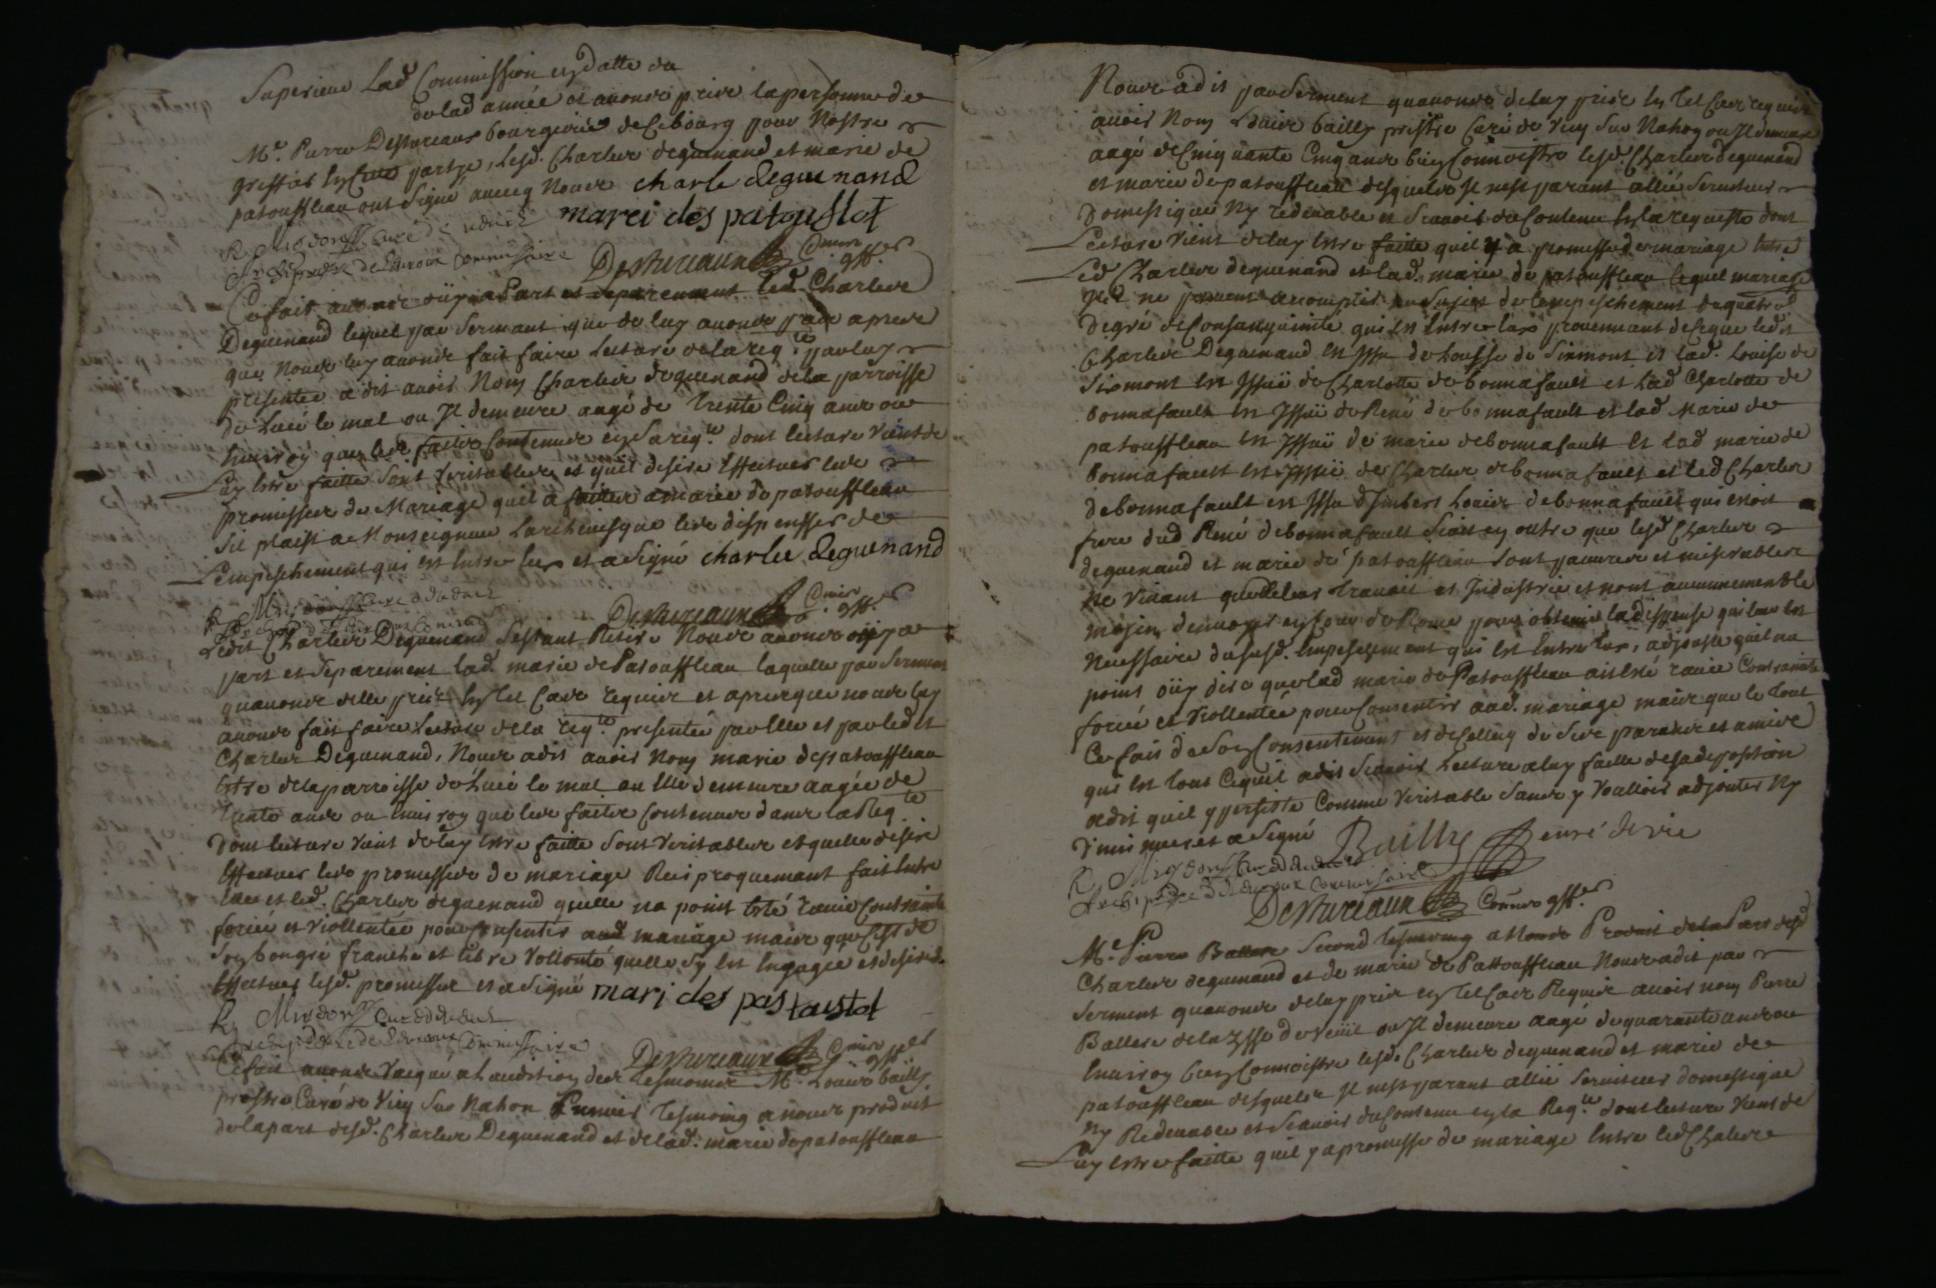 Superieur Lad Commission en datte du
de lad année et avons prins la personne de
Me. Pierre Destureaux bourgeois de ce bourg pour Nostre
greffier en cette partye, Lesd. Charles deguenand et marie de
patouffleau ont signé avecq Nous charle deguenand
marei des patouflot
Curé de
archiprestre de commissaire Destureaux Commis gffer
Ce fait avons oüy a Part et separement led. Charles
Deguenand lequel par serment que de luy avons pris apres
que Nous luy avons fait faire Lecture de la reqte par luy
presentée a dit avoir Nom Charles deguenand de la parroisse
de Lucé le mal ou Il demeure aagé de trente Cinq ans ou
environ que les faits Contenus en sa reqte dont lecture vient de
Luy estre faitte sont veritables et qu'il desire effectuer les
promesses de Mariage quil a faittes a marie de patouffleau
sil plaist a Monseigneur Larchevesque les dispenser de
L'empeschement qui est entre eux et a signé charle deguenand
Destureaux Commis gffer
Ledit Charles Deguenand s'estant Retiré Nous avons oüy a
part et separement lad. marie de Patouffleau laquelle par serment
quavons delle pris en tel Cas requis et apres que nous luy
avons fait faire Lecture de la reqte presentée par elle et par ledit
Charles Deguenand, Nous a dit avoir Nom marie de patouffleau
estre de la parroisse de Lucé le mal ou elle demeure aagée de
trente ans ou environ que les faits Contenus dans la Reqte
Dont lecture vient de luy estre faitte sont veritables et quelle desire
effectuer les promesses de mariage Reciproquement fait entre
elle et led. Charles deguenand quelle na point esté ravie Contrainte
forcée et viollentée pour Consentir aud mariage mais que C'est de
son bon gré franche et libre vollonté quelle sy est engagée et desire
effectuer lesd. promesses et a signé mari des pas toustot
Curé de
archiprestre de commissaire Destureaux Commis gffer
Ce fait avons vacqué a Laudition des tesmoins Me. Louis bailly
prestre Curé de Vicq sur Nahon Premier tesmoing a nous produit
de la part desd. Charles Deguenand et de lad. marie de patouffleau
Nous a dit par serment quavons de luy pris en tel Cas requis
avoir Nom Louis bailly prestre Curé de Vicq sur Nahon ou Il demeure
aagé de Cinquante Cinq ans bien Connoistre lesd. Charles deguenand
et marie de patouffleau desquels Il nest parant allié serviteur
Domestique Ny redevable et scavoir du Contenu en la requeste dont
Lecture vient de luy estre faitte quil y a promesse de mariage entre
Led Charles deguenand et lad. marie de patouffleau lequel mariage
Ils ne peuvent accomplir au sujet de lempeschement de quatre
Degré de Consanguinité qui est entre eux provennant de ce que ledit
Charles Deguenand est Issu de Louisse de Sixmont et lad. Louise de
Sixmont est Issuë de Charlotte de bonnafault et Lad Charlotte de
bonnafault est Issuë de René de bonnafault et lad Marie de
patouffleau est Issuë de marie de bonnafault et lad marie de
bonnafault est Issuë de Charles de bonnafault et led Charles
de bonnafault est Issu d'Imbert Louis de bonnafault qui estoit
frere dud René de bonnafault scait en outre que lesd Charles
deguenand et marie de patouffleau sont pauvres et miserables
Ne vivant que de leur travail et Industrie et nont aucunement le
moyen denvoyer en Cour de Rome pour obtenir la dispense qui leur est
Necessaire du susd. Empeschement qui est entre eux, adjouste quil na
point oüy dire que lad marie de Patouffleau ait esté ravie Contrainte
forcée et viollentée pour Consentir aud. mariage mais que le tout
Ce fait de son Consentement et de Celluy de ses parans et amis
qui est tout Ce quil a dit scavoir Lecture a luy faitte de sa deposition
a dit quil y persiste Comme veritable sans y voulloir adjouter Ny
diminuer et a signé Bailly curé de vic
archiprestre de commissaire
Destureaux Commis gffer
Me. Pierre Ballere second tesmoing a Nous Produit de la Part desd
Charles deguenand et de marie de Pattouffleau Nous a dit par
serment quavons de luy pris en tel Cas Requis avoir nom Pierre
Ballere de la psse de Veüil ou Il demeure aagé de quarante ans ou
environ bien Connoistre lesd. Charles deguenand et marie de
patouffleau desquels Il nest parant allié serviteur domestique
Ny Redevable et scavoir du Contenu en la Reqte dont lecture vient de
Luy estre faitte quil y a promesse de mariage entre led Charles